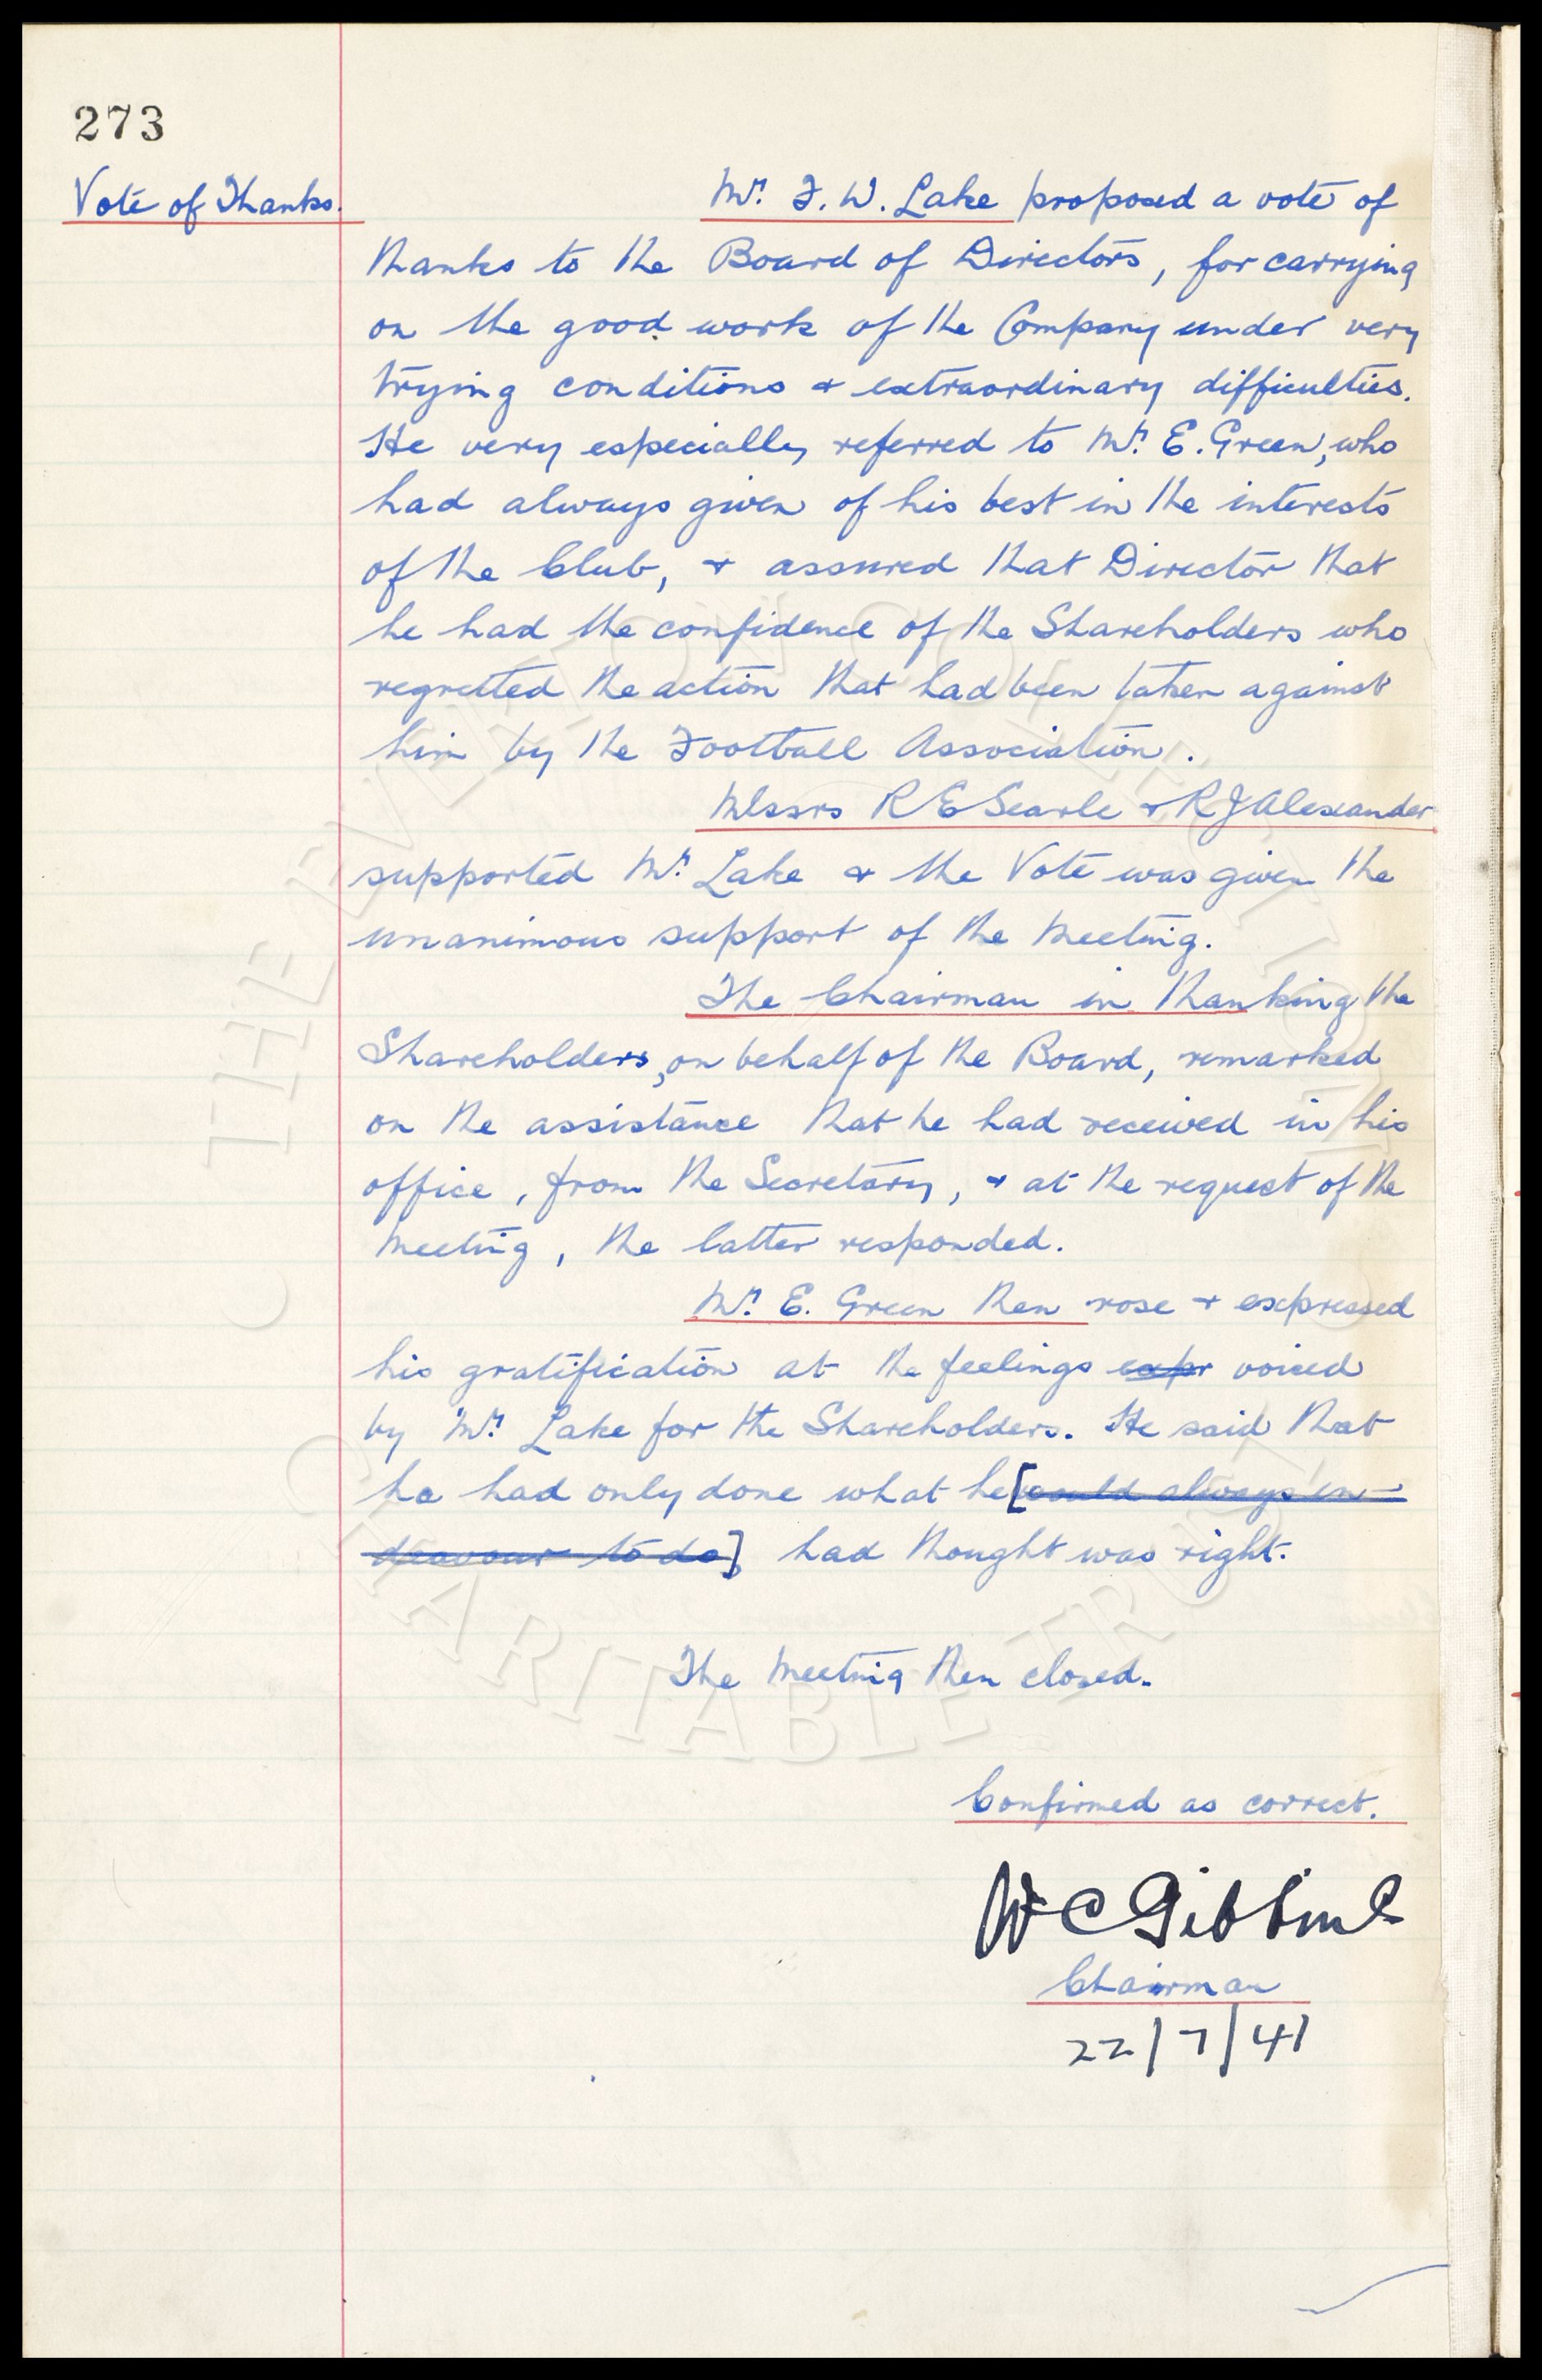 273
Vote of Thanks.
Mr. F. W. Lake proposed a vote of
thanks to the Board of Directors, for carrying
on the good work of the Company under very
trying conditions & extraordinary difficulties.
He very especially referred to Mr. E. Green, who
had always given of his best in the interests
of the Club, & assured that Director that
he had the confidence of the Shareholders who
regretted the action that had been taken against
him by the Football Association.
Messrs R E Searle & R J Alexander
supported Mr. Lake & the Vote was given the
unanimous support of the Meeting.
The Chairman in thanking the
Shareholders, on behalf of the Board, remarked
on the assistance that he had received in his
office, from the Secretary, & at the request of the
Meeting, the latter responded.
Mr. E. Green then rose & expressed
his gratification at the feelings expr voiced
by Mr. Lake for the Shareholders. He said that
he had only done what he [could always en-
deavour to do] had thought was right.
The Meeting then closed.
Confirmed as correct.
W C Gibbins
Chairman
22/7/41
THE EVERTON COLLECTION
CHARITABLE TRUST